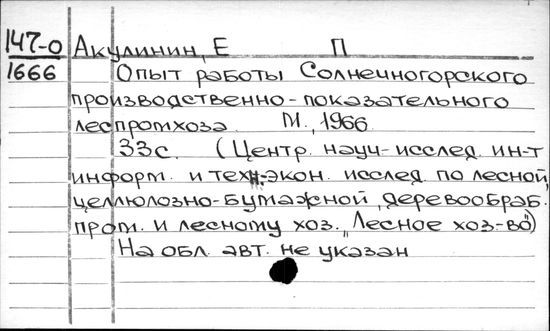 147-0 Акулинин, Е П
1666 Опыт работы Солнечногорского
производственно-показательного
леспромхоза М., 1966
33с. (Центр. науч-исслед. ин-т
информ. и техн-экон. исслед. по лесной,
целлюлозно-бумажной, деревообраб.
пром. и лесному хоз. "Лесное хоз-во")
На обл. авт. не указан